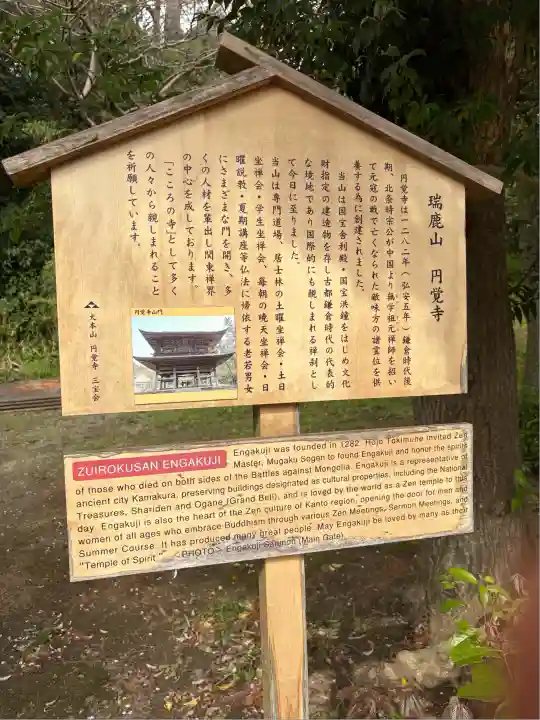 瑞鹿山 円覚寺
円覚寺は一二八二年（弘安五年）鎌倉時代後
期、北条時宗公が中国より無学祖元禅師を招い
て元寇の戦で亡くなられた敵味方の諸霊位を供
養する為に創建されました。
当山は国宝舎利殿・国宝洪鐘をはじめ文化
財指定の建造物を存し古都鎌倉時代の代表的
な境地であり国際的にも親しまれる禅刹とし
て今日に至りました。
当山は専門道場、居士林の土曜坐禅会・土日
坐禅会・学生坐禅会、毎朝の暁天坐禅会・日
曜説教・夏期講座等仏法に帰依する老若男女
にさまざまな門を開き、多
くの人材を輩出し関東禅界
の中心を成しております。
「こころの寺」として多く
の人々から親しまれること
を祈願しています。
大本山 円覚寺 三宝会
円覚寺山門
ZUIROKUSAN ENGAKUJI Engakuji was founded in 1282. Hojo Tokimune Invited Zen
Master, Mugaku Sogen to found Engakuji and honor the spirits
of those who died on both sides of the Battles against Mongolia. Engakuji is a representative of
ancient city Kamakura, preserving buildings designated as cultural properties, including the National
Treasures, Shariden and Ogane (Grand Bell), and is loved by the world as a Zen temple to this
day. Engakuji is also the heart of the Zen culture of Kanto region, opening the door for men and
women of all ages who embrace Buddhism through various Zen Meetings, Sermon Meetings, and
Summer Course. It has produced many great people. May Engakuji be loved by many as their
"Temple of Spirit." <PHOTO> Engakuji Sanmon (Main Gate)